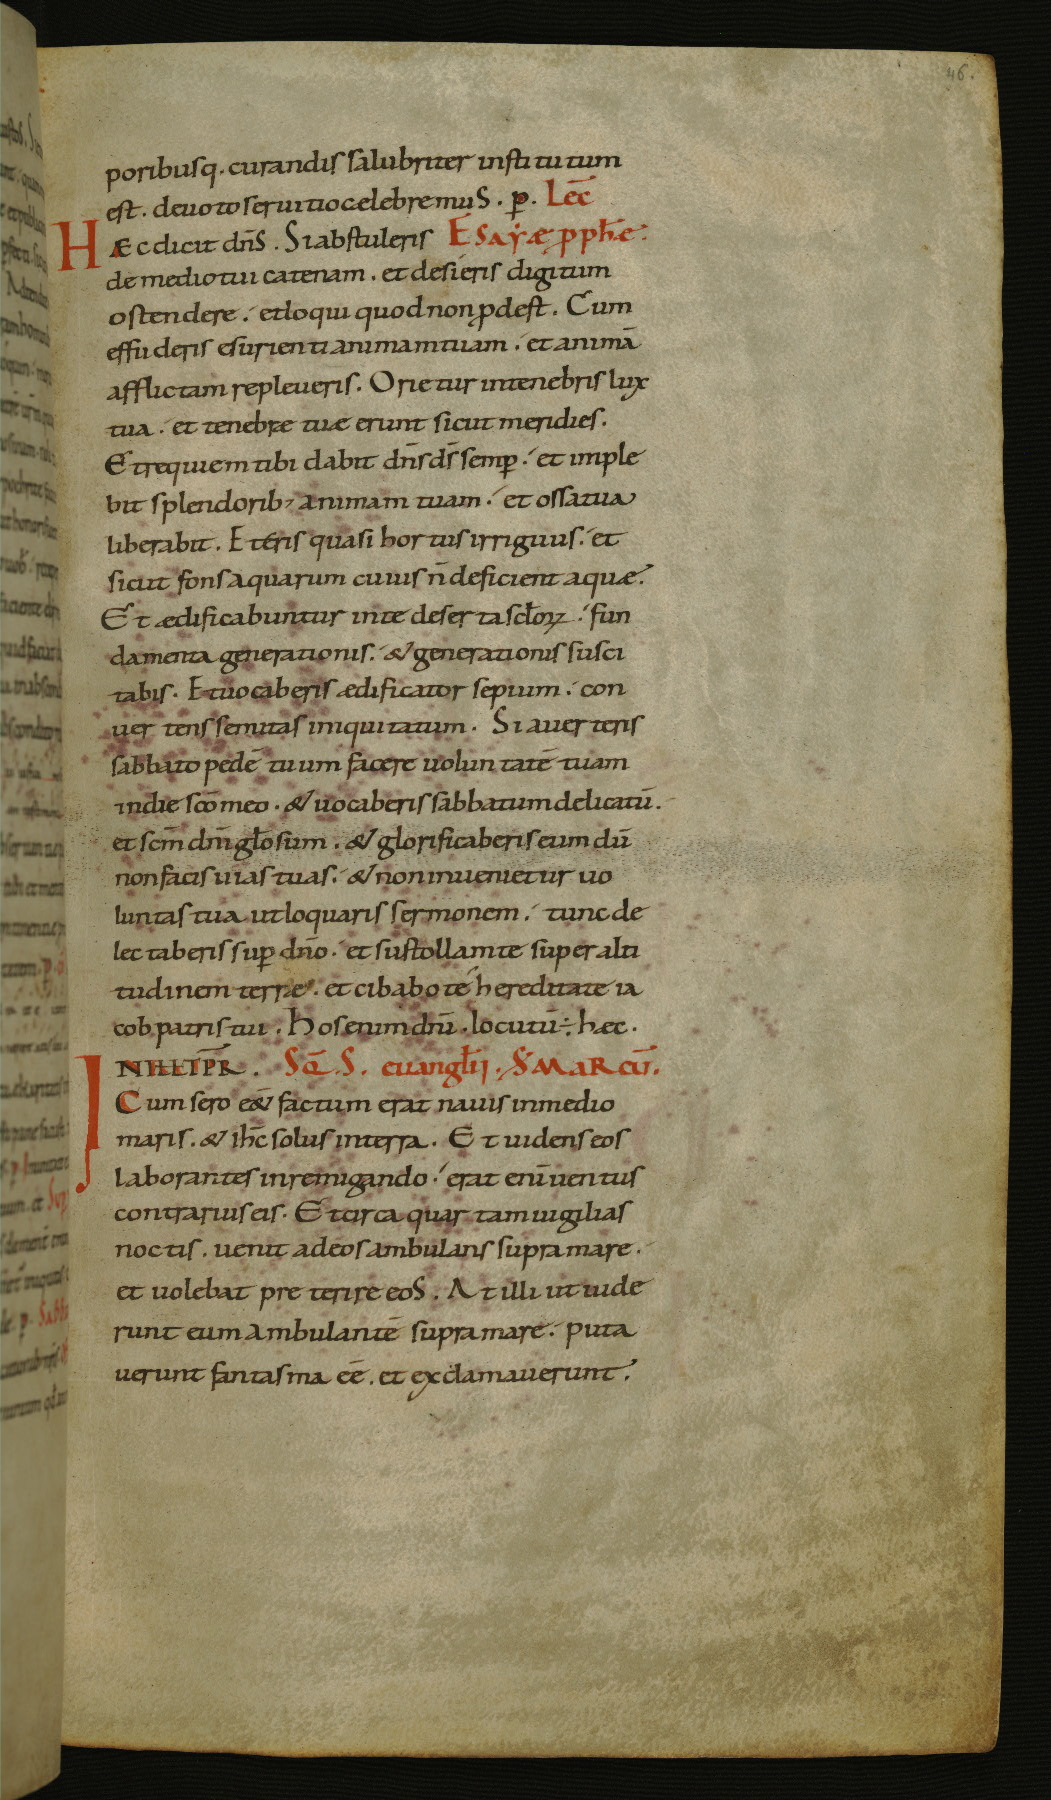 46.
poribusq. curandis salubriter institutum
est. deuoto seruitio celebremus. p. Lec̄
HÆc dicit dn̄s. Si abstuleris Esaẏæ p̱phꝫe.
de medio tui catenam. et desieris digitum
ostendere. et loqui quod non p̱dest. Cum
effuderis esurienti animam tuam. et animā
afflictam repleueris. Orietur in tenebris lux
tua. et tenebræ tuæ erunt sicut meridies.
Et requiem tibi dabit dn̄s ds̄ semp̱. et imple
bit splendorib; animam tuam. et ossa tua
liberabit. Et eris quasi hortus irriguus. et
sicut fons aquarum cuius n̄ deficient aquæ.
Et ædificabuntur in te deserta scl̄oꝝ. fun
damenta generationis. & generationis susci
tabis. Et uocaberis ædificator sepium. con
uertens semitas iniquitatum. Si auerteris
sabbato pedē tuum facere uoluntatē tuam
in die sc̄o meo. & uocaberis sabbatum delicatū.
et scm̄ dnī gl̄osum. & glorificaberis eum dū
non facis uias tuas. & non inuenietur uo
luntas tua ut loquaris sermonem. tunc de
lectaberis sup̱ dn̄o. et sustollam te super alti
tudinem terræ. et cibabo te hereditate ia
cob patris tui. Hos enim dnī. locutū ÷ hæc.
IN ILL TPR. SQ̄. S. euangl̄ii. S MARCŪ.
Cum sero e& factum erat nauis in medio
maris. & ih̄c solus in terra. Et uidens eos
laborantes in remigando. erat enī uentus
contrarius eis. Et circa quartam uigilias
noctis. uenit ad eos ambulans supra mare.
et uolebat preterire eos. At illi ut uide
runt eum ambulantē supra mare. puta
uerunt fantasma eē. et exclamauerunt.